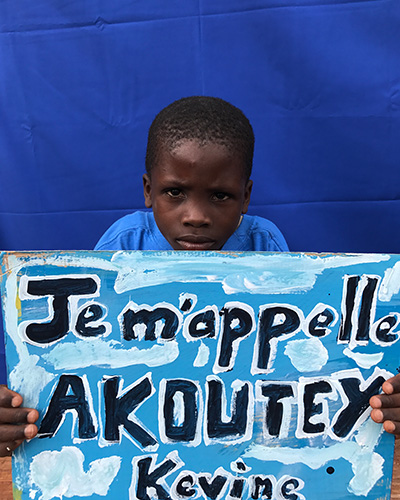 Je m'appelle
AKOUTEY
Kevine